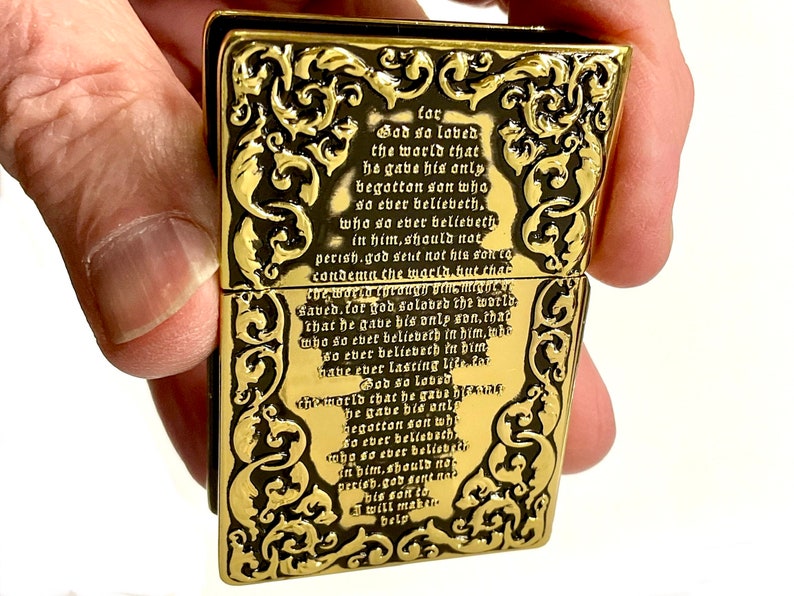 for
God so loved
the world that
he gave his only
begotton son who
so ever believeth,
who so ever believeth
in him, should not
perish. god sent not his son to
condemn the world, but that
the world through him, might
saved. for god soloved the world
that he gave his only son, that
who so ever believeth in him, who
so ever believeth in him
have ever lasting life, for
God so loved
the world that he gave his only
he gave his only
begotton son who
so ever believeth,
who so ever believeth
in him, should not
perish. god sent not
his son to
I will maken
help